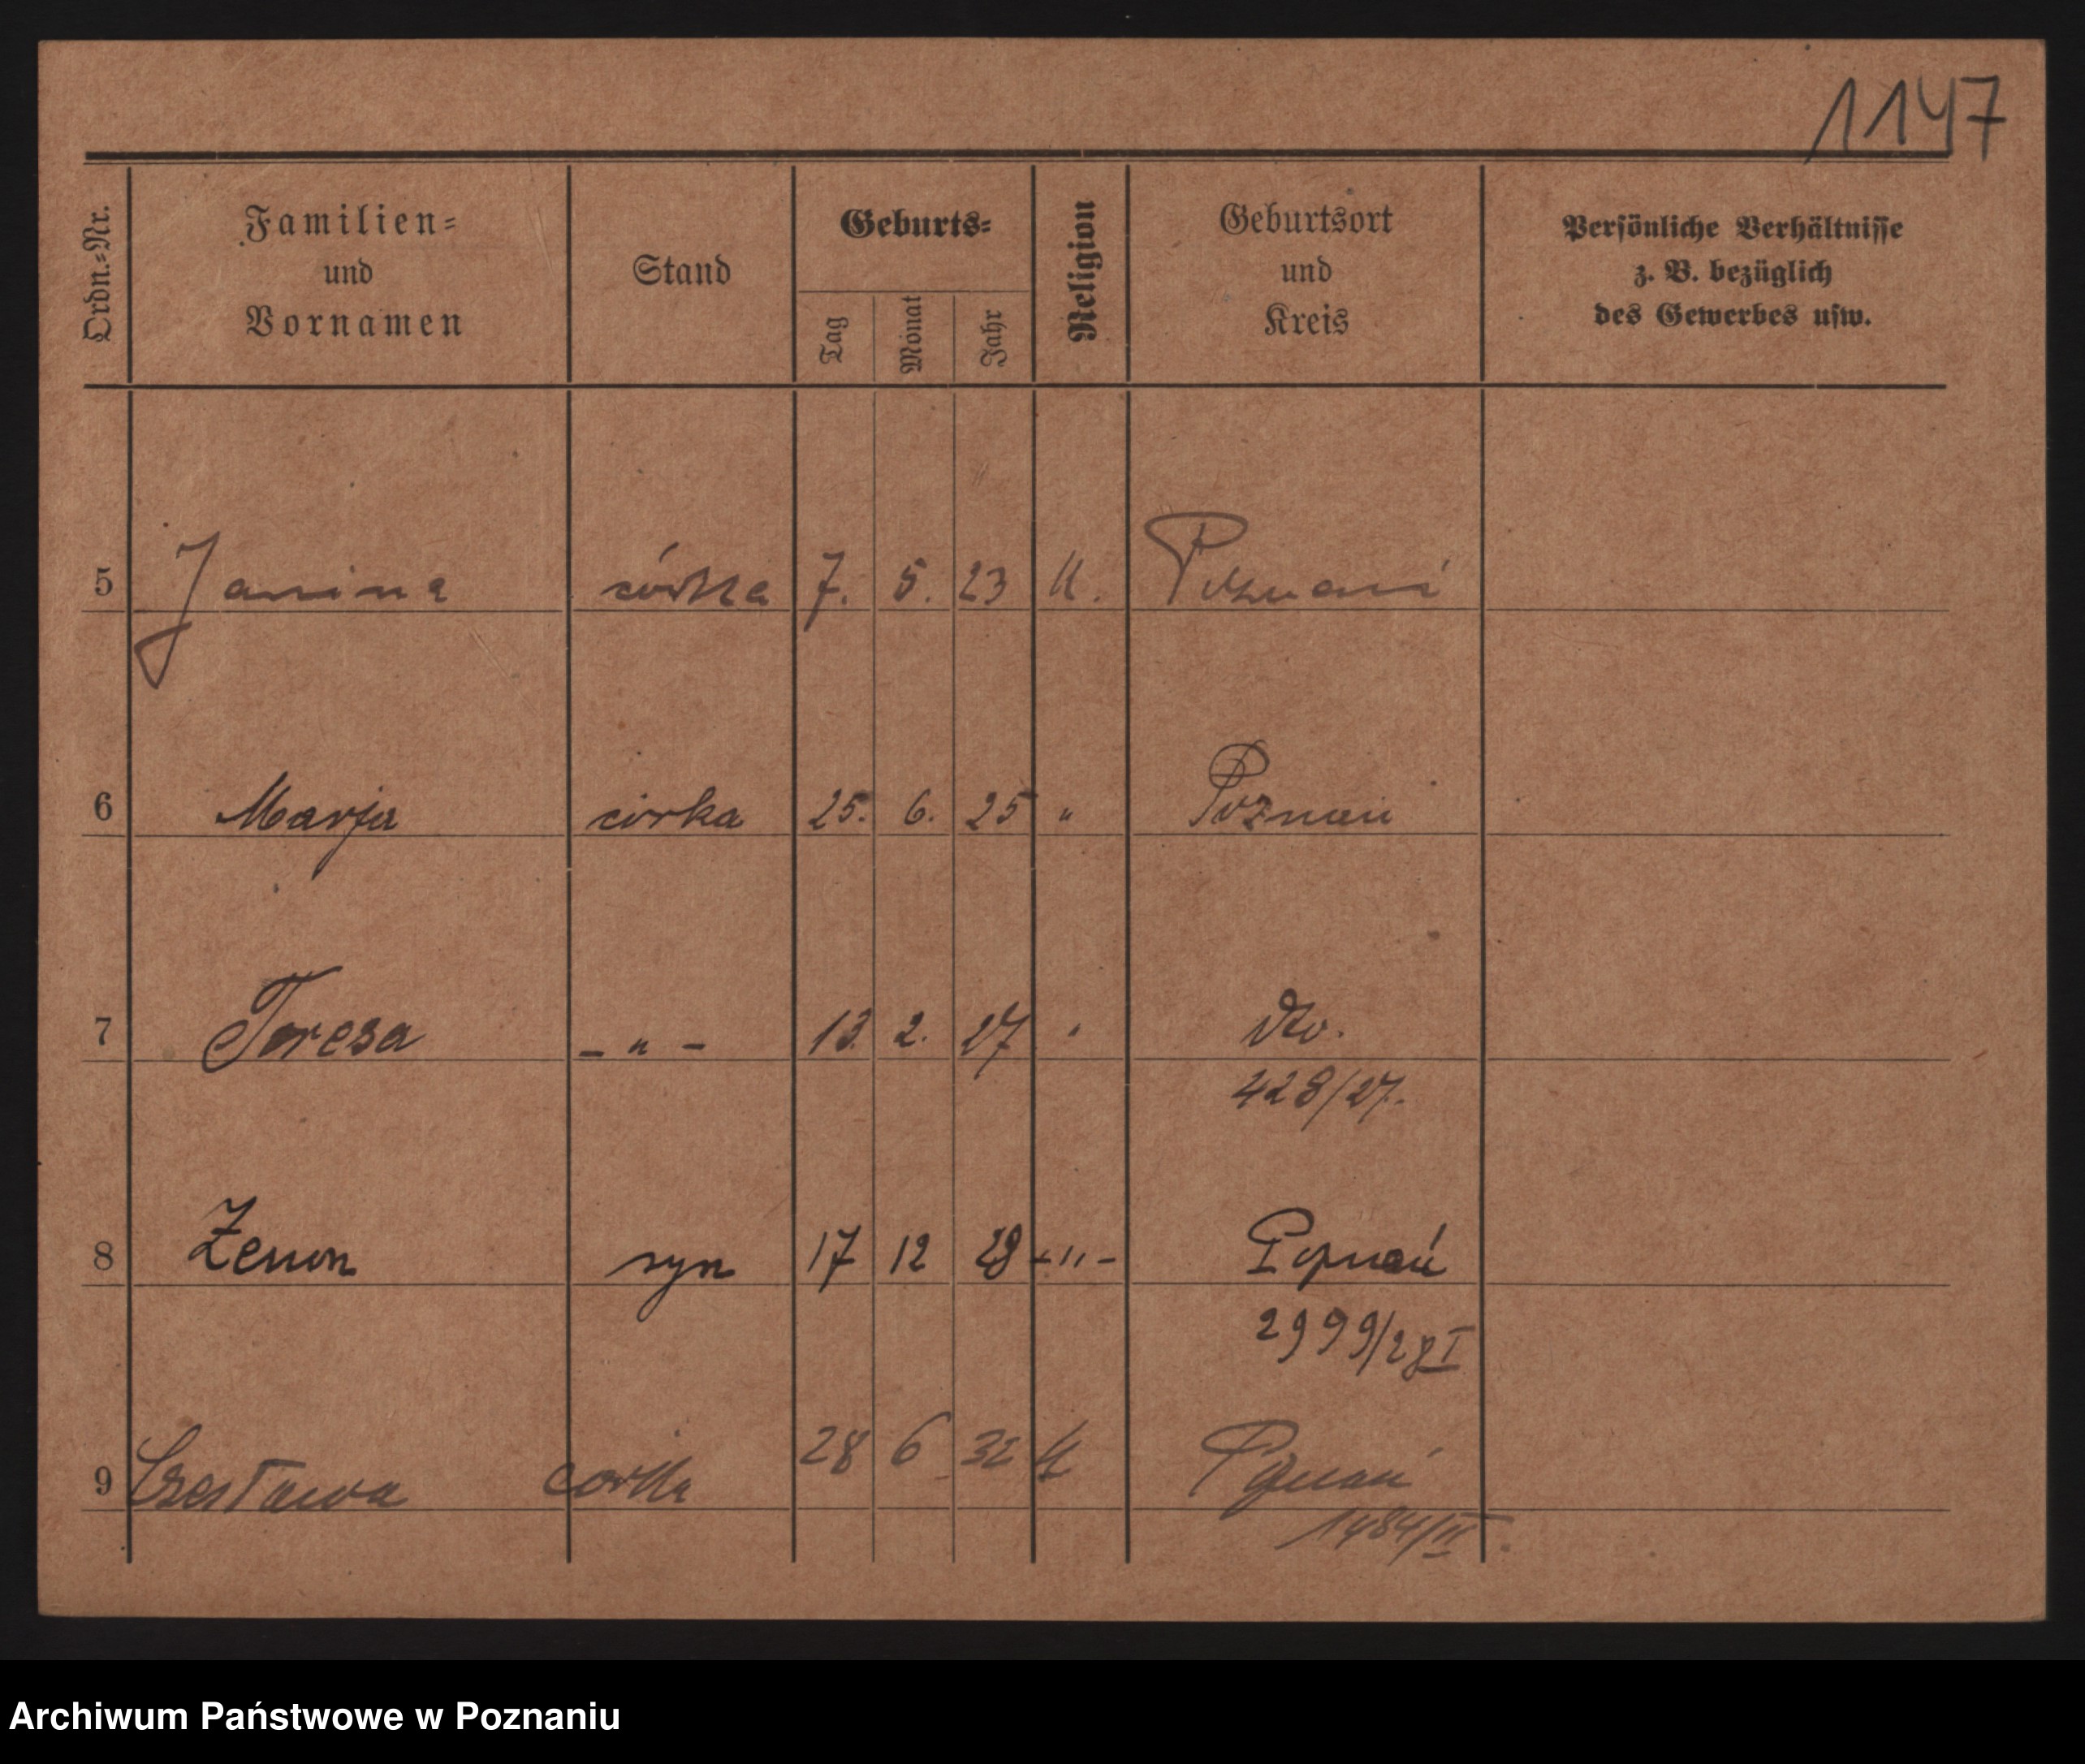 1147
Ordn.-Nr.
Familien-
und
Vornamen
Stand
Geburts-
Tag
Monat
Jahr
Religion
Geburtsort
und
Kreis
Persönliche Verhältnisse
z. B. bezüglich
des Gewerbes usw.
5 Janina córka 7. 5. 23 k. Poznań
6 Marja córka 25. 6. 25 " Poznań
7 Teresa - " - 13. 2. 27 " dto.
428/27.
8 Zenon syn 17 12 28 - " - Poznań
2999/28 I
9 Czesława córka 28 6 32 k Poznań
1484/II.
Archiwum Państwowe w Poznaniu